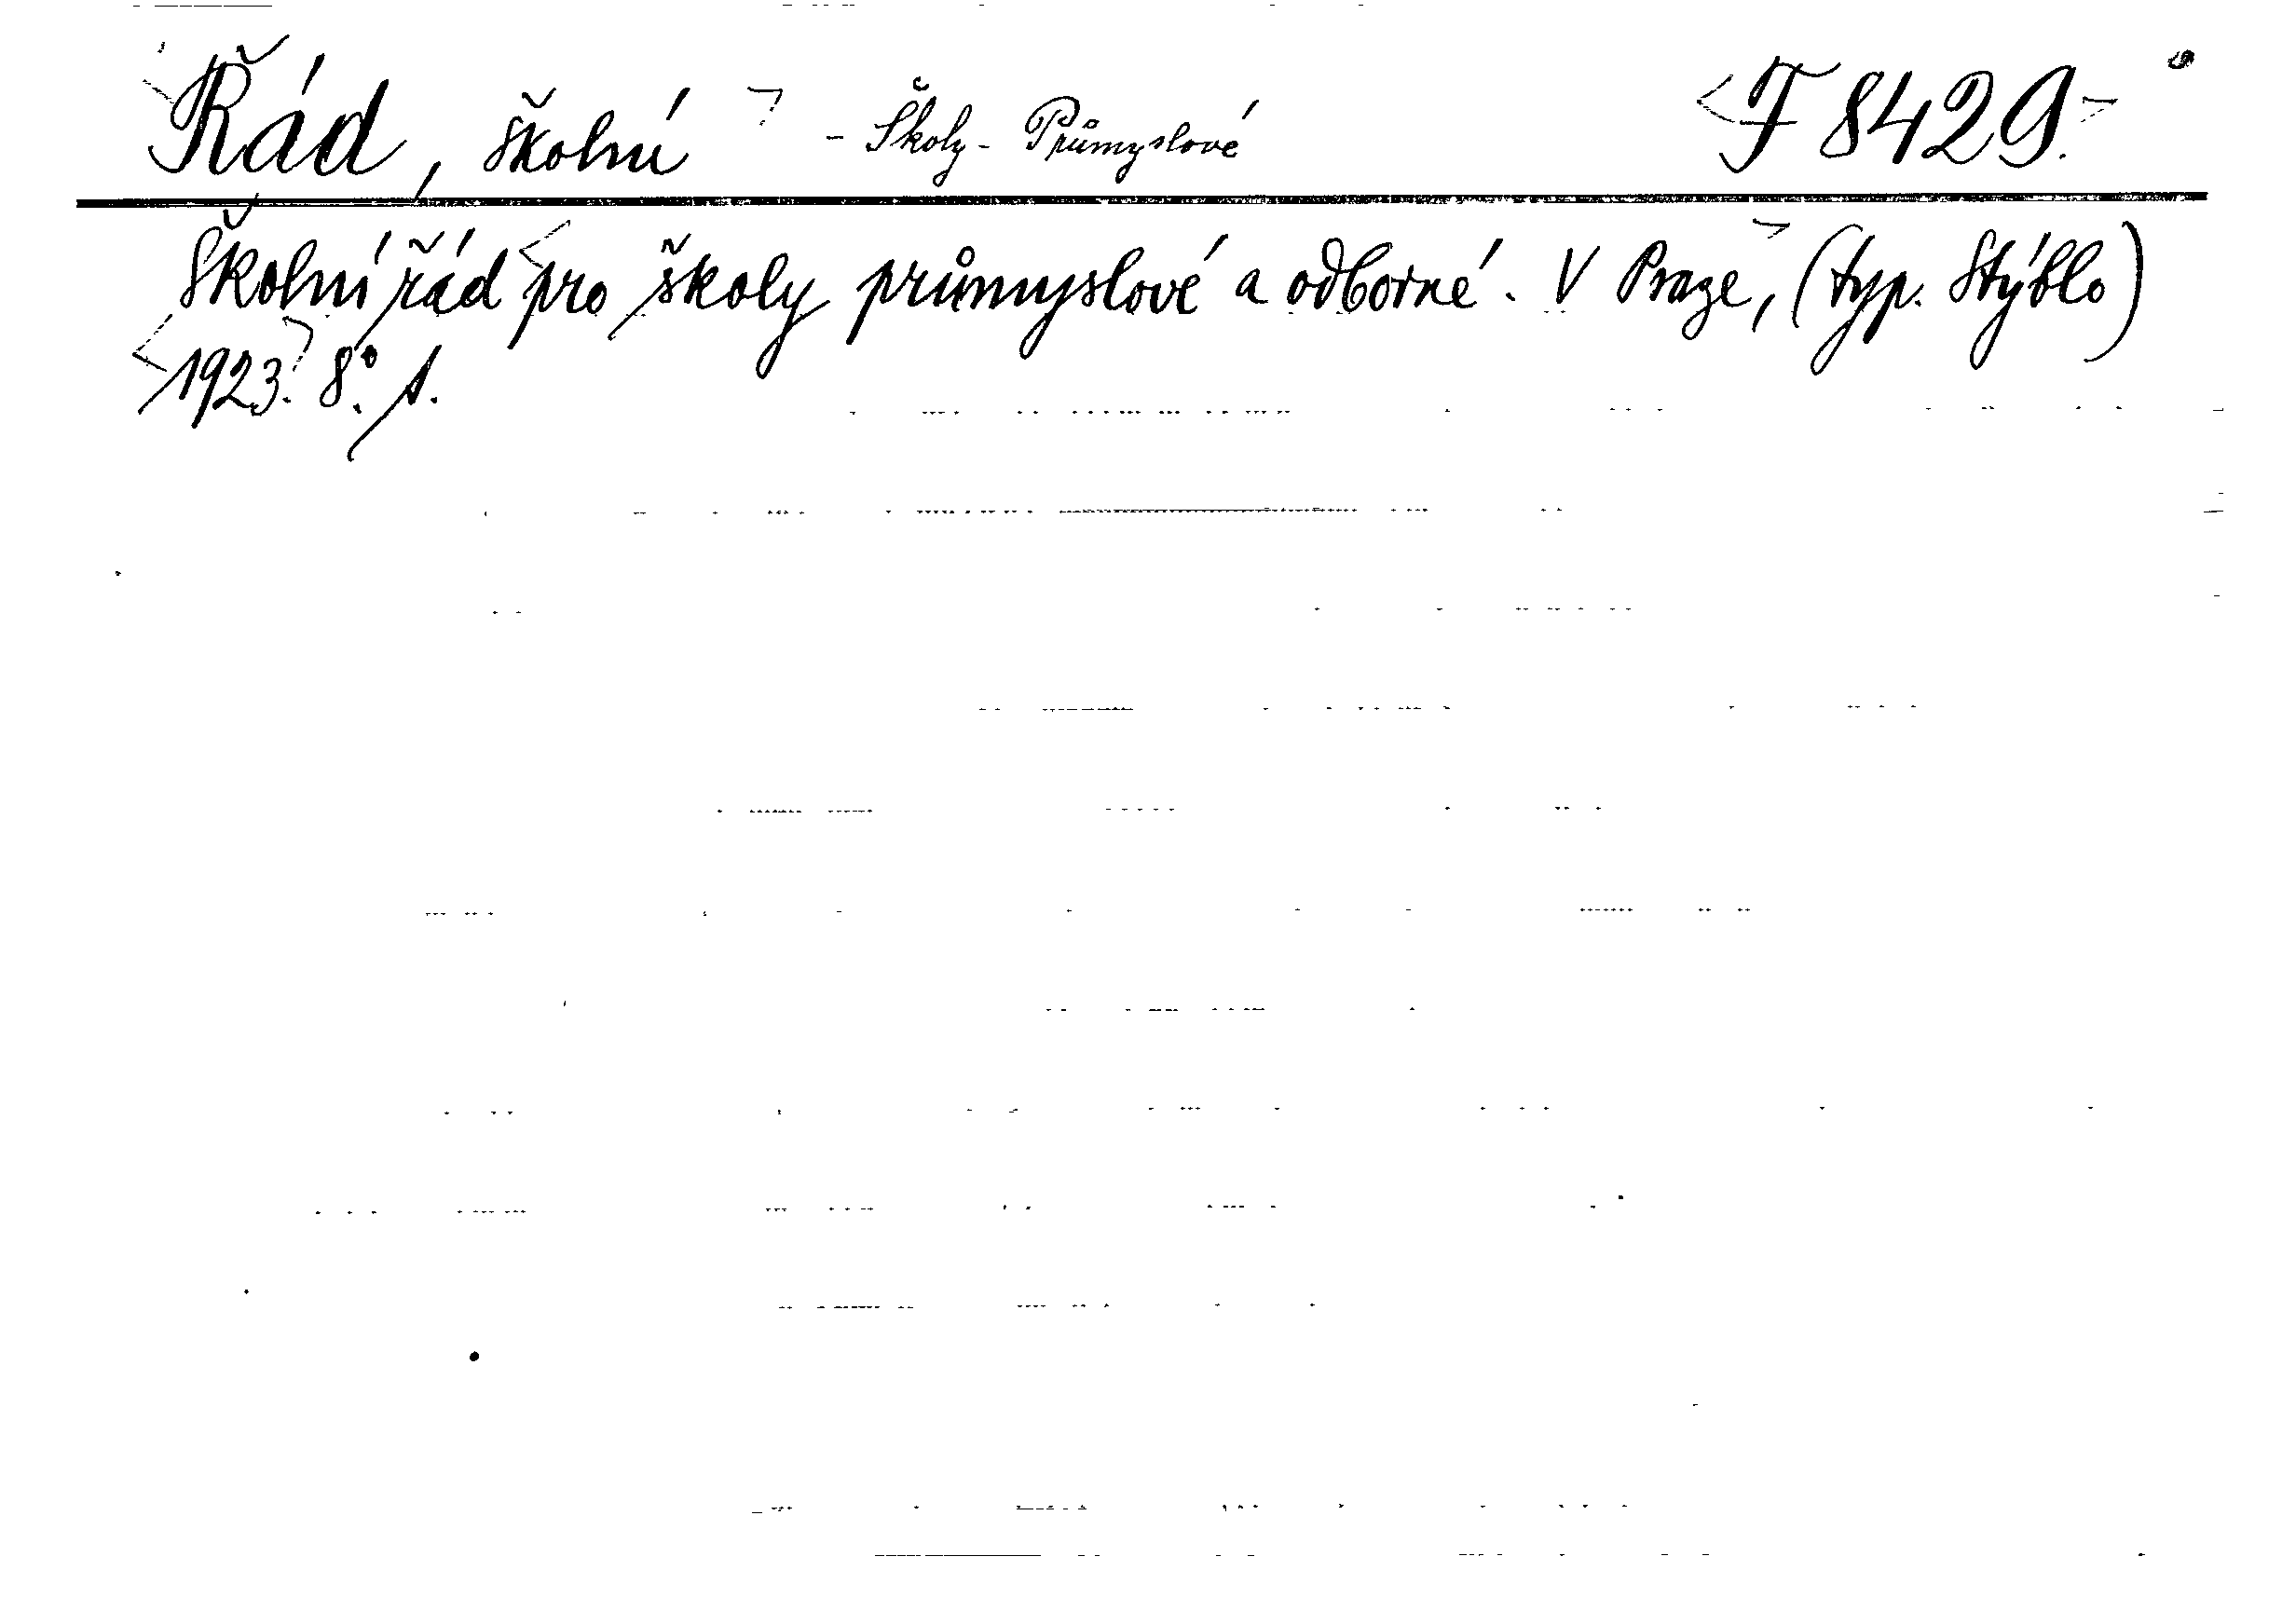 Řád, školní - Školy - Průmyslové F 8429.
Školní řád pro školy průmyslové a odborné. V Praze, (typ. Stýblo)
1923. 8°. s.